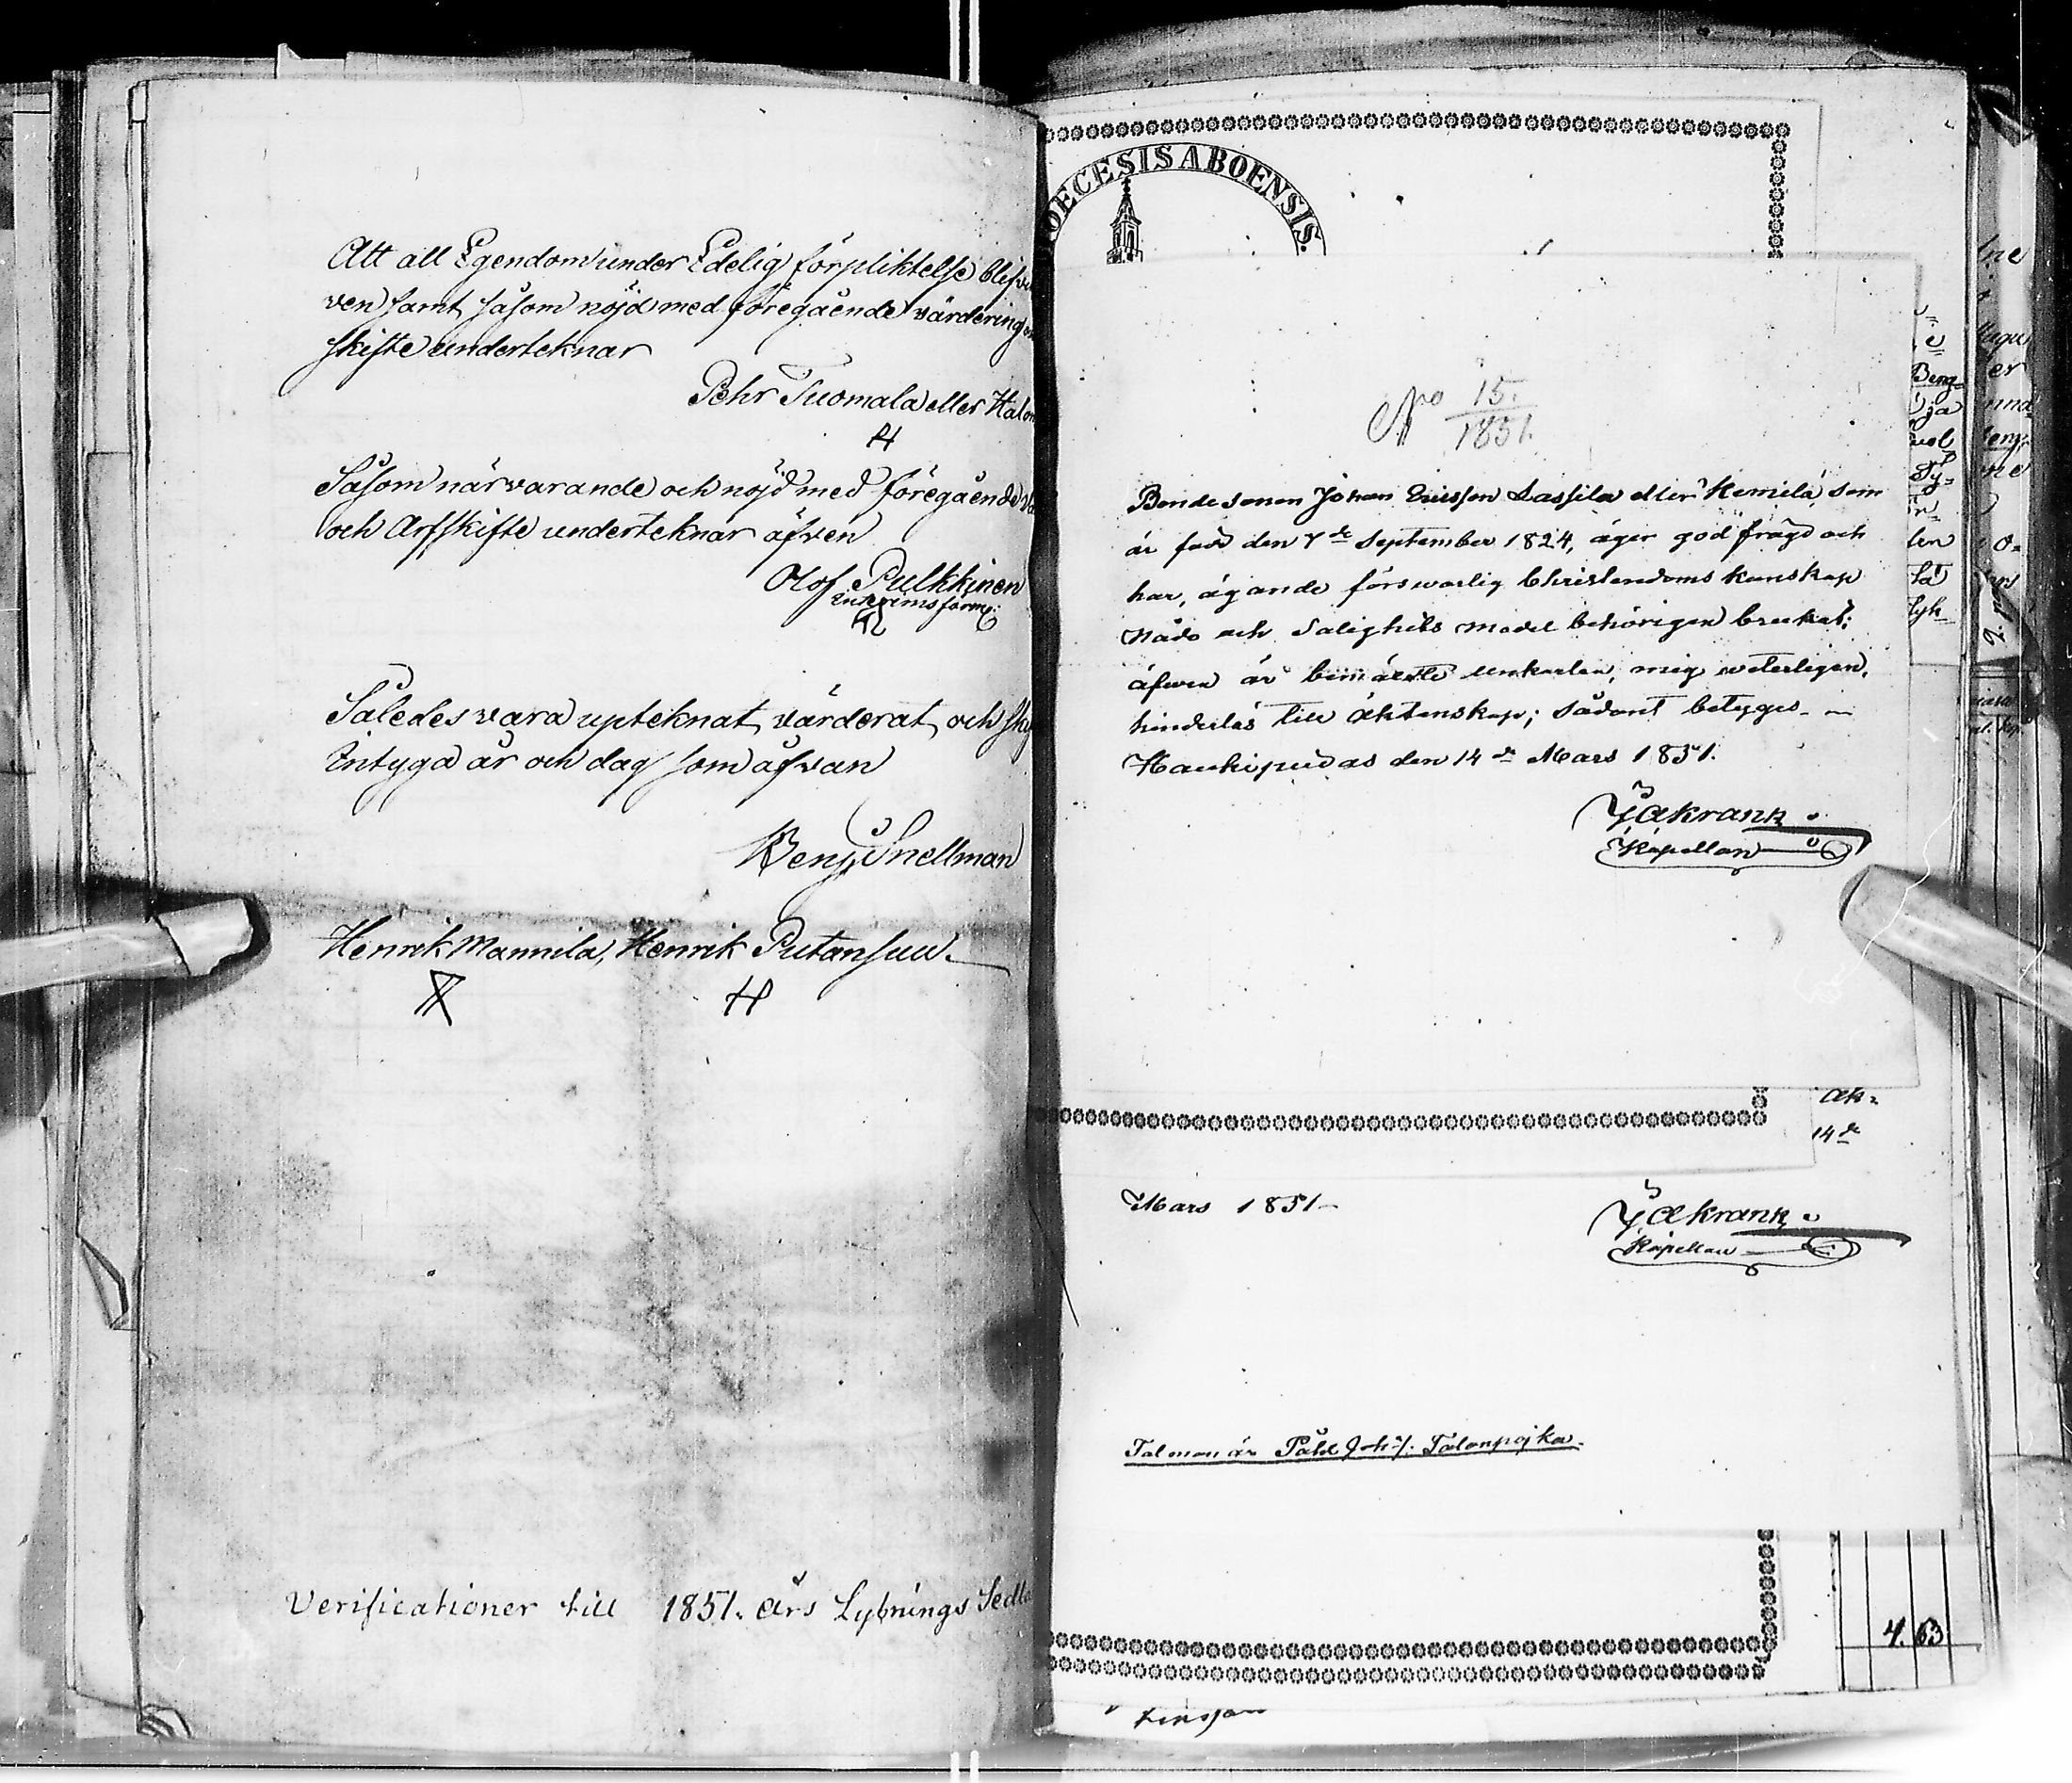 Att all Egendom under Edelig förpliktelse blifvi
ven samt såsom nöjd med föregående värdering
skifte underteknar
Pehr Tuomala eller Halo
Såsom närvarande och nöjd med föregående
och Arfskifte underteknar äfven
Olof Pulkkinen
Således vara upteknat, värderat, och
Intyga år och dag som åfvan
Benj Snellman
Henrik Mannila, Henrik Putansuu.
Verificationer till 1851. års Lysnings Sedl
OECESIS ABOENSIS.
No 15.
1851.
Bondesonen Johan Ericsson Lassila eller Kemilä, som
är född den 7de September 1824, äger god frägd och
har, ägande förswarlig Christendoms kunskap
nåde och Salighets medel behörigen brukat;
äfwen är bemärkte ungkarlen, mig weterligen,
hinderlös till äktenskap; sådant betyges. —
Haukipudas den 14de Mars 1851.
J Åkrank.
Kapellan
äk=
14de
Mars 1851—
J Åkrank.
Kapellan
Talman är Påhl Joh:s/: Talonpojka.
4. 63